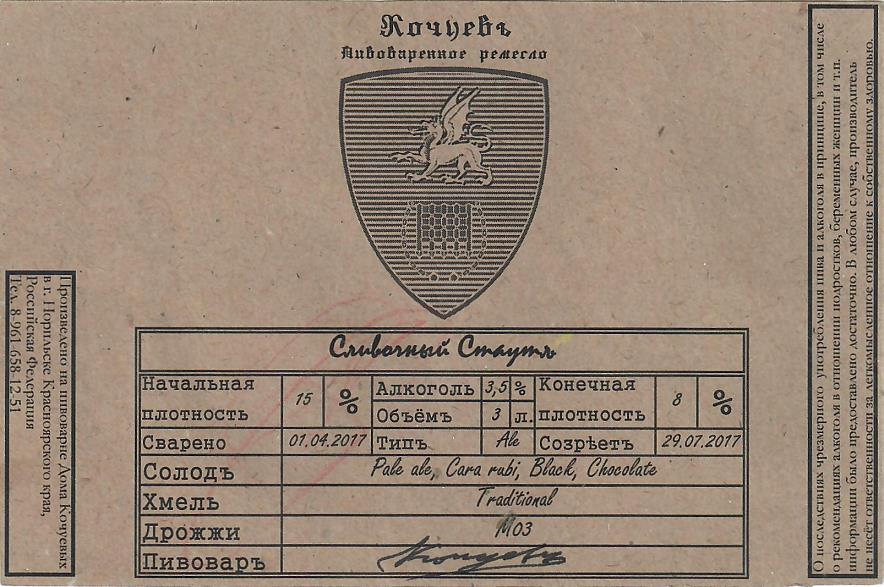 Кочуевъ
Пивоваренное ремесло
Сливочный Стаутъ
Начальная плотность 15 %
Алкоголь 3,5 %
Объёмъ 3 л.
Конечная плотность 8 %
Сварено 01.04.2017
Типъ Ale
Созрѣетъ 29.07.2017
Солодъ Pale ale, Cara rubi, Black, Chocolate
Хмель Traditional
Дрожжи M03
Пивоваръ Кочуевъ
Произведено на пивоварне Дома Кочуевых
в г. Норильске Красноярского края,
Российская Федерация
Тел. 8-961-658-12-51
О последствиях чрезмерного употребления пива и алкоголя в принципе, в том числе
о рекомендациях алкоголя в отношении подростков, беременных женщин и т.п.
информации было предоставлено достаточно. В любом случае, производитель
не несёт ответственности за легкомысленное отношение к собственному здоровью.